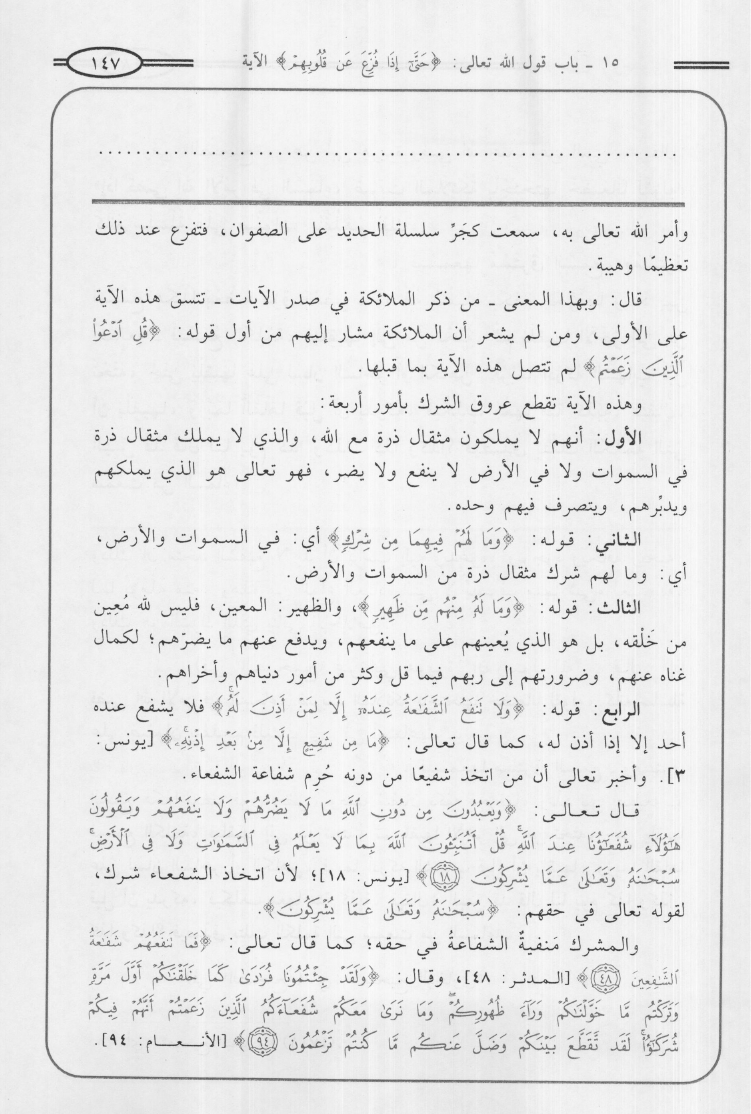 ١٥ ـ باب قول الله تعالى: ﴿حَتَّىٰٓ إِذَا فُزِّعَ عَن قُلُوبِهِمۡ﴾ الآية
١٤٧
................................................................
وأمر الله تعالى به، سمعت كجَرِّ سلسلة الحديد على الصفوان، فتفزع عند ذلك
تعظيمًا وهيبة.
قال: وبهذا المعنى ـ من ذكر الملائكة في صدر الآيات ـ تتسق هذه الآية
على الأولى، ومن لم يشعر أن الملائكة مشار إليهم من أول قوله: ﴿قُلِ ٱدۡعُواْ
ٱلَّذِينَ زَعَمۡتُم﴾ لم تتصل هذه الآية بما قبلها.
وهذه الآية تقطع عروق الشرك بأمور أربعة:
الأول: أنهم لا يملكون مثقال ذرة مع الله، والذي لا يملك مثقال ذرة
في السموات ولا في الأرض لا ينفع ولا يضر، فهو تعالى هو الذي يملكهم
ويدبِّرهم، ويتصرف فيهم وحده.
الثاني: قوله: ﴿وَمَا لَهُمۡ فِيهِمَا مِن شِرۡكٖ﴾ أي: في السموات والأرض،
أي: وما لهم شرك مثقال ذرة من السموات والأرض.
الثالث: قوله: ﴿وَمَا لَهُۥ مِنۡهُم مِّن ظَهِيرٖ﴾، والظهير: المعين، فليس لله مُعِين
من خَلْقه، بل هو الذي يُعينهم على ما ينفعهم، ويدفع عنهم ما يضرّهم؛ لكمال
غناه عنهم، وضرورتهم إلى ربهم فيما قل وكثر من أمور دنياهم وأخراهم.
الرابع: قوله: ﴿وَلَا تَنفَعُ ٱلشَّفَٰعَةُ عِندَهُۥٓ إِلَّا لِمَنۡ أَذِنَ لَهُۥۚ﴾ فلا يشفع عنده
أحد إلا إذا أذن له، كما قال تعالى: ﴿مَا مِن شَفِيعٍ إِلَّا مِنۢ بَعۡدِ إِذۡنِهِۦۚ﴾ [يونس:
٣]. وأخبر تعالى أن من اتخذ شفيعًا من دونه حُرِم شفاعة الشفعاء.
قال تعالى: ﴿وَيَعۡبُدُونَ مِن دُونِ ٱللَّهِ مَا لَا يَضُرُّهُمۡ وَلَا يَنفَعُهُمۡ وَيَقُولُونَ
هَٰٓؤُلَآءِ شُفَعَٰٓؤُنَا عِندَ ٱللَّهِۚ قُلۡ أَتُنَبِّـُٔونَ ٱللَّهَ بِمَا لَا يَعۡلَمُ فِي ٱلسَّمَٰوَٰتِ وَلَا فِي ٱلۡأَرۡضِۚ
سُبۡحَٰنَهُۥ وَتَعَٰلَىٰ عَمَّا يُشۡرِكُونَ ١٨﴾ [يونس: ١٨]؛ لأن اتخاذ الشفعاء شرك،
لقوله تعالى في حقهم: ﴿سُبۡحَٰنَهُۥ وَتَعَٰلَىٰ عَمَّا يُشۡرِكُونَ﴾.
والمشرك مَنفيةٌ الشفاعةُ في حقه؛ كما قال تعالى: ﴿فَمَا تَنفَعُهُمۡ شَفَٰعَةُ
ٱلشَّٰفِعِينَ ٤٨﴾ [المدثر: ٤٨]، وقال: ﴿وَلَقَدۡ جِئۡتُمُونَا فُرَٰدَىٰ كَمَا خَلَقۡنَٰكُمۡ أَوَّلَ مَرَّةٖ
وَتَرَكۡتُم مَّا خَوَّلۡنَٰكُمۡ وَرَآءَ ظُهُورِكُمۡۖ وَمَا نَرَىٰ مَعَكُمۡ شُفَعَآءَكُمُ ٱلَّذِينَ زَعَمۡتُمۡ أَنَّهُمۡ فِيكُمۡ
شُرَكَٰٓؤُاْۚ لَقَد تَّقَطَّعَ بَيۡنَكُمۡ وَضَلَّ عَنكُم مَّا كُنتُمۡ تَزۡعُمُونَ ٩٤﴾ [الأنعام: ٩٤].